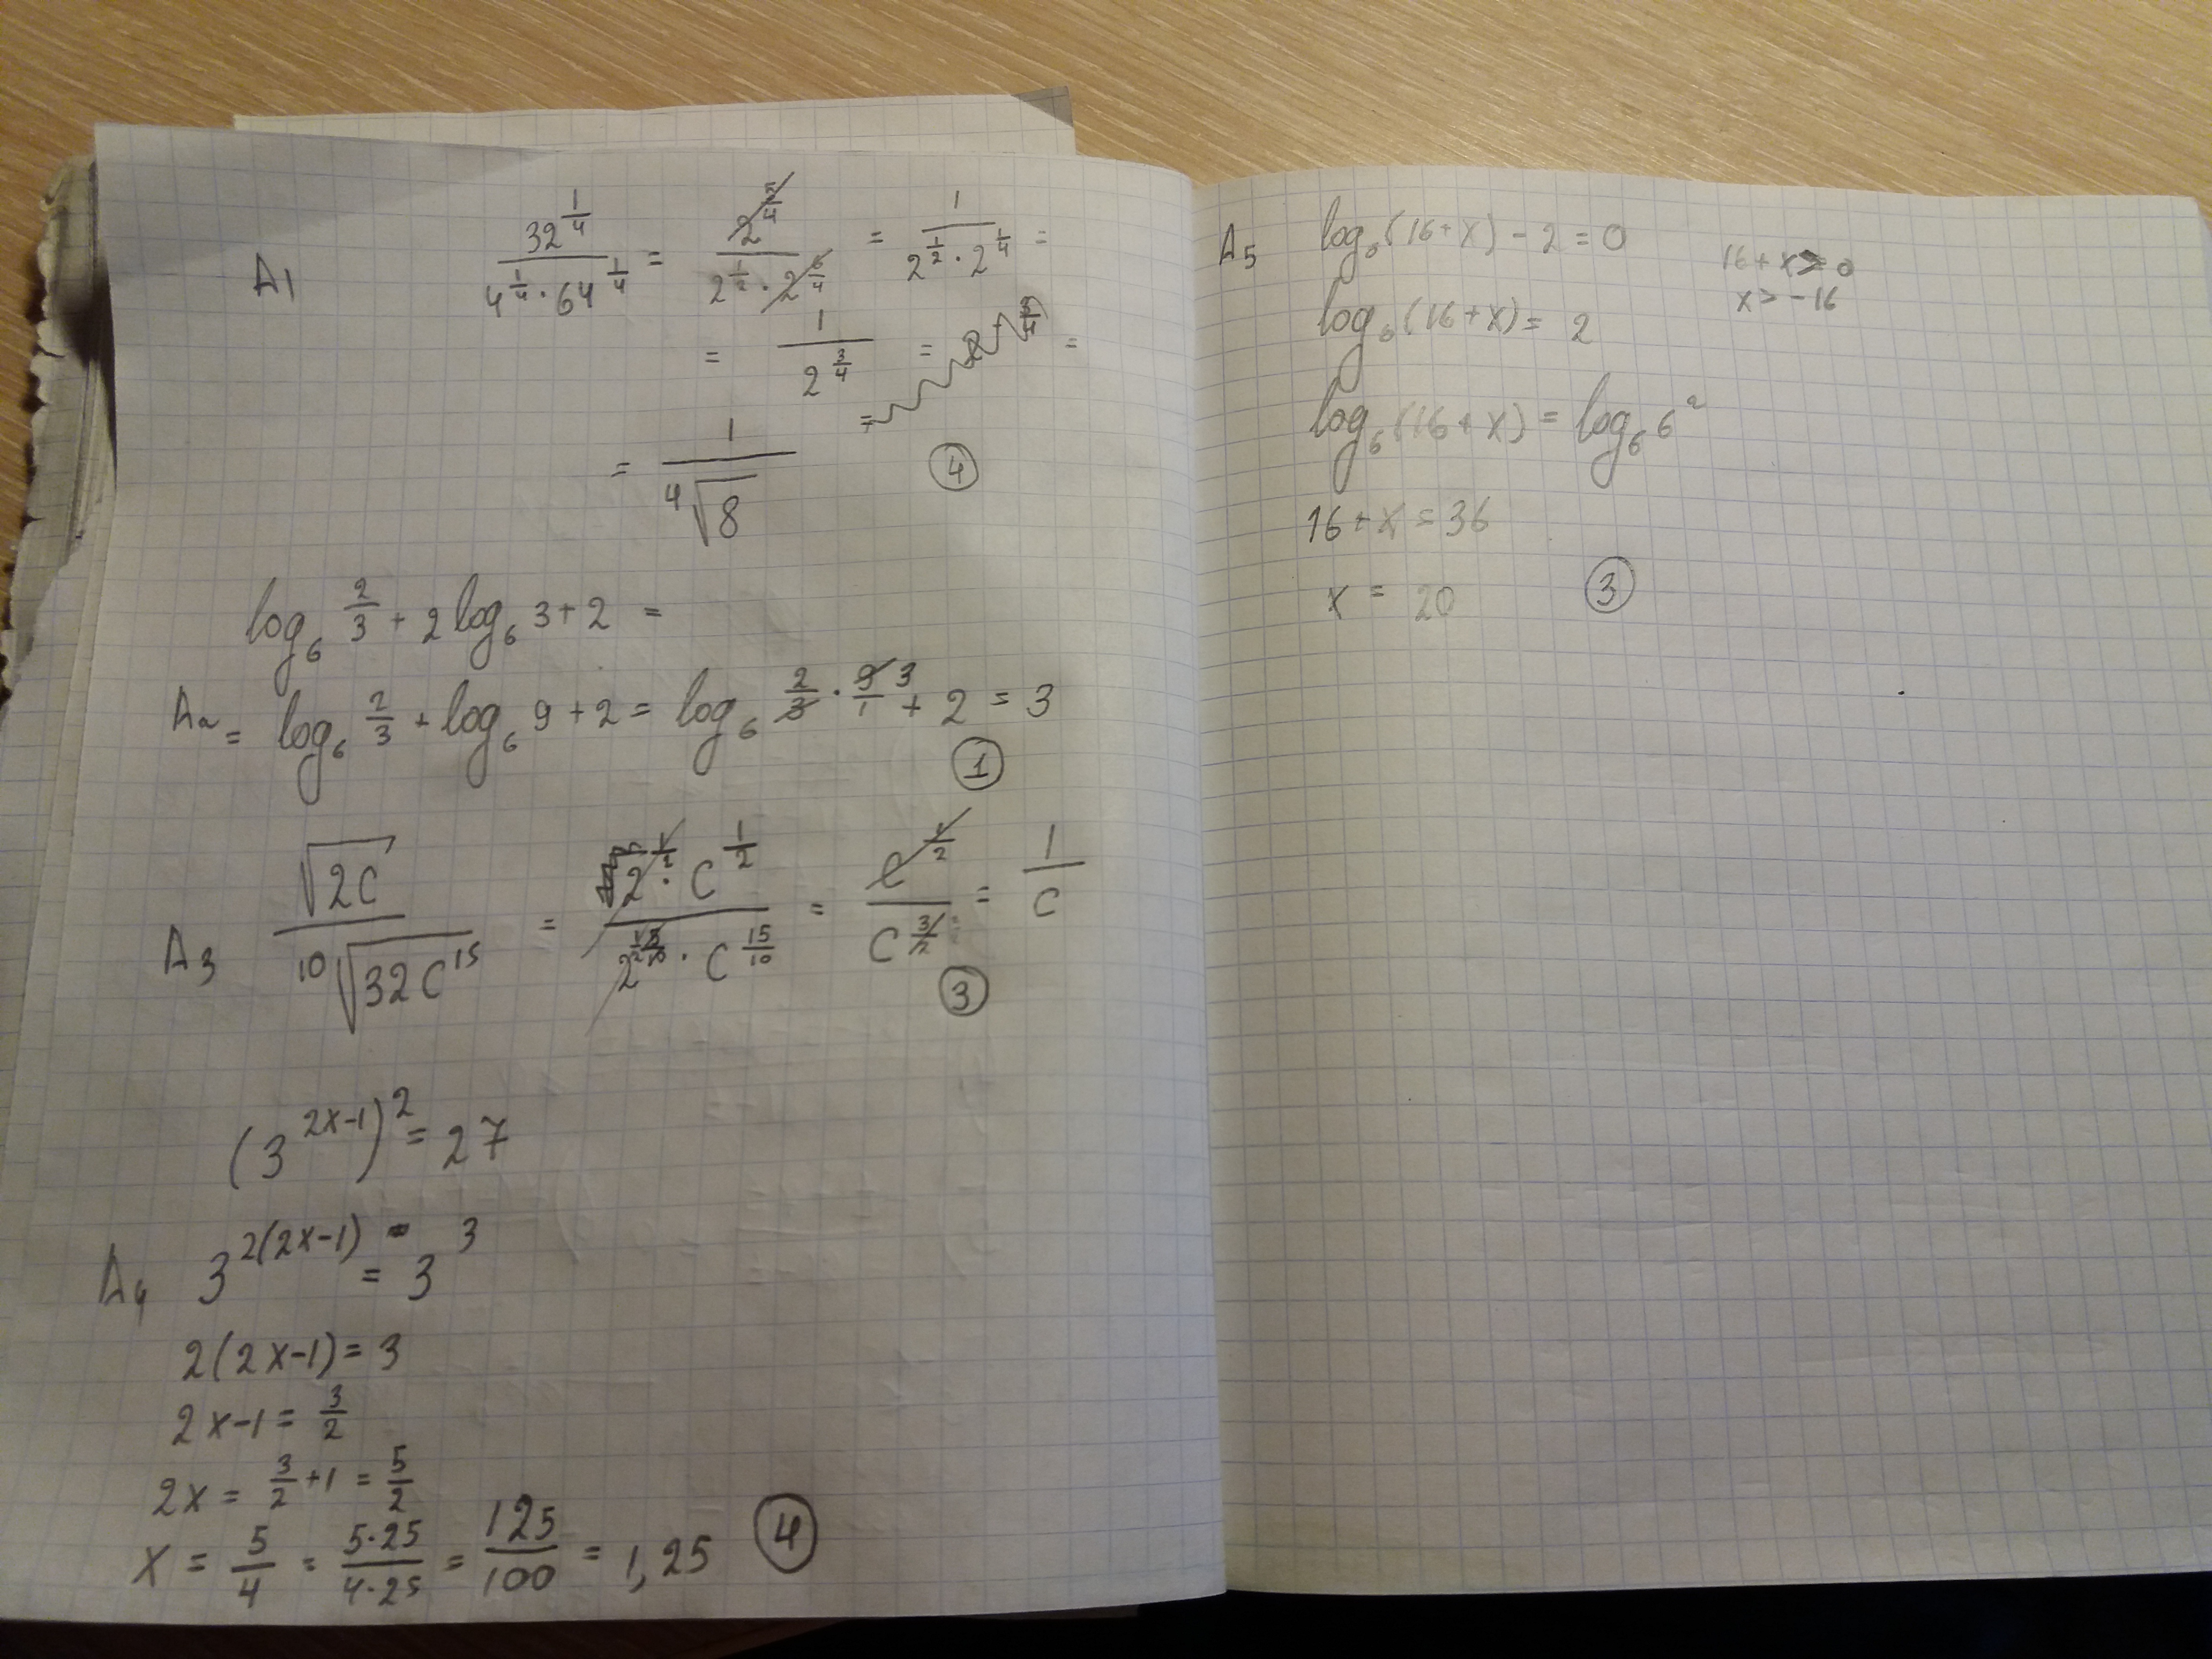 A1 32^(1/4) / (4^(1/4) · 64^(1/4)) = 2^(5/4) / (2^(1/2) · 2^(6/4)) = 1 / (2^(1/2) · 2^(1/4)) =
= 1 / 2^(3/4) = =
= 1 / ⁴√8 ④
log₆ 2/3 + 2 log₆ 3 + 2 =
A2 = log₆ 2/3 + log₆ 9 + 2 = log₆ 2/3 · 9/1 3 + 2 = 3
①
A3 √2C / ¹⁰√32C¹⁵ = 2^(1/2) · C^(1/2) / (2^(1/2) · C^(15/10)) = C^(1/2) / C^(3/2) = 1/C
③
(3^(2x-1))² = 27
A4 3^(2(2x-1)) = 3³
2(2x-1) = 3
2x-1 = 3/2
2x = 3/2 + 1 = 5/2
x = 5/4 = 5·25 / 4·25 = 125/100 = 1,25 ④
A5 log₆(16+x) - 2 = 0 16+x > 0
log₆(16+x) = 2 x > -16
log₆(16+x) = log₆ 6²
16+x = 36
x = 20 ③